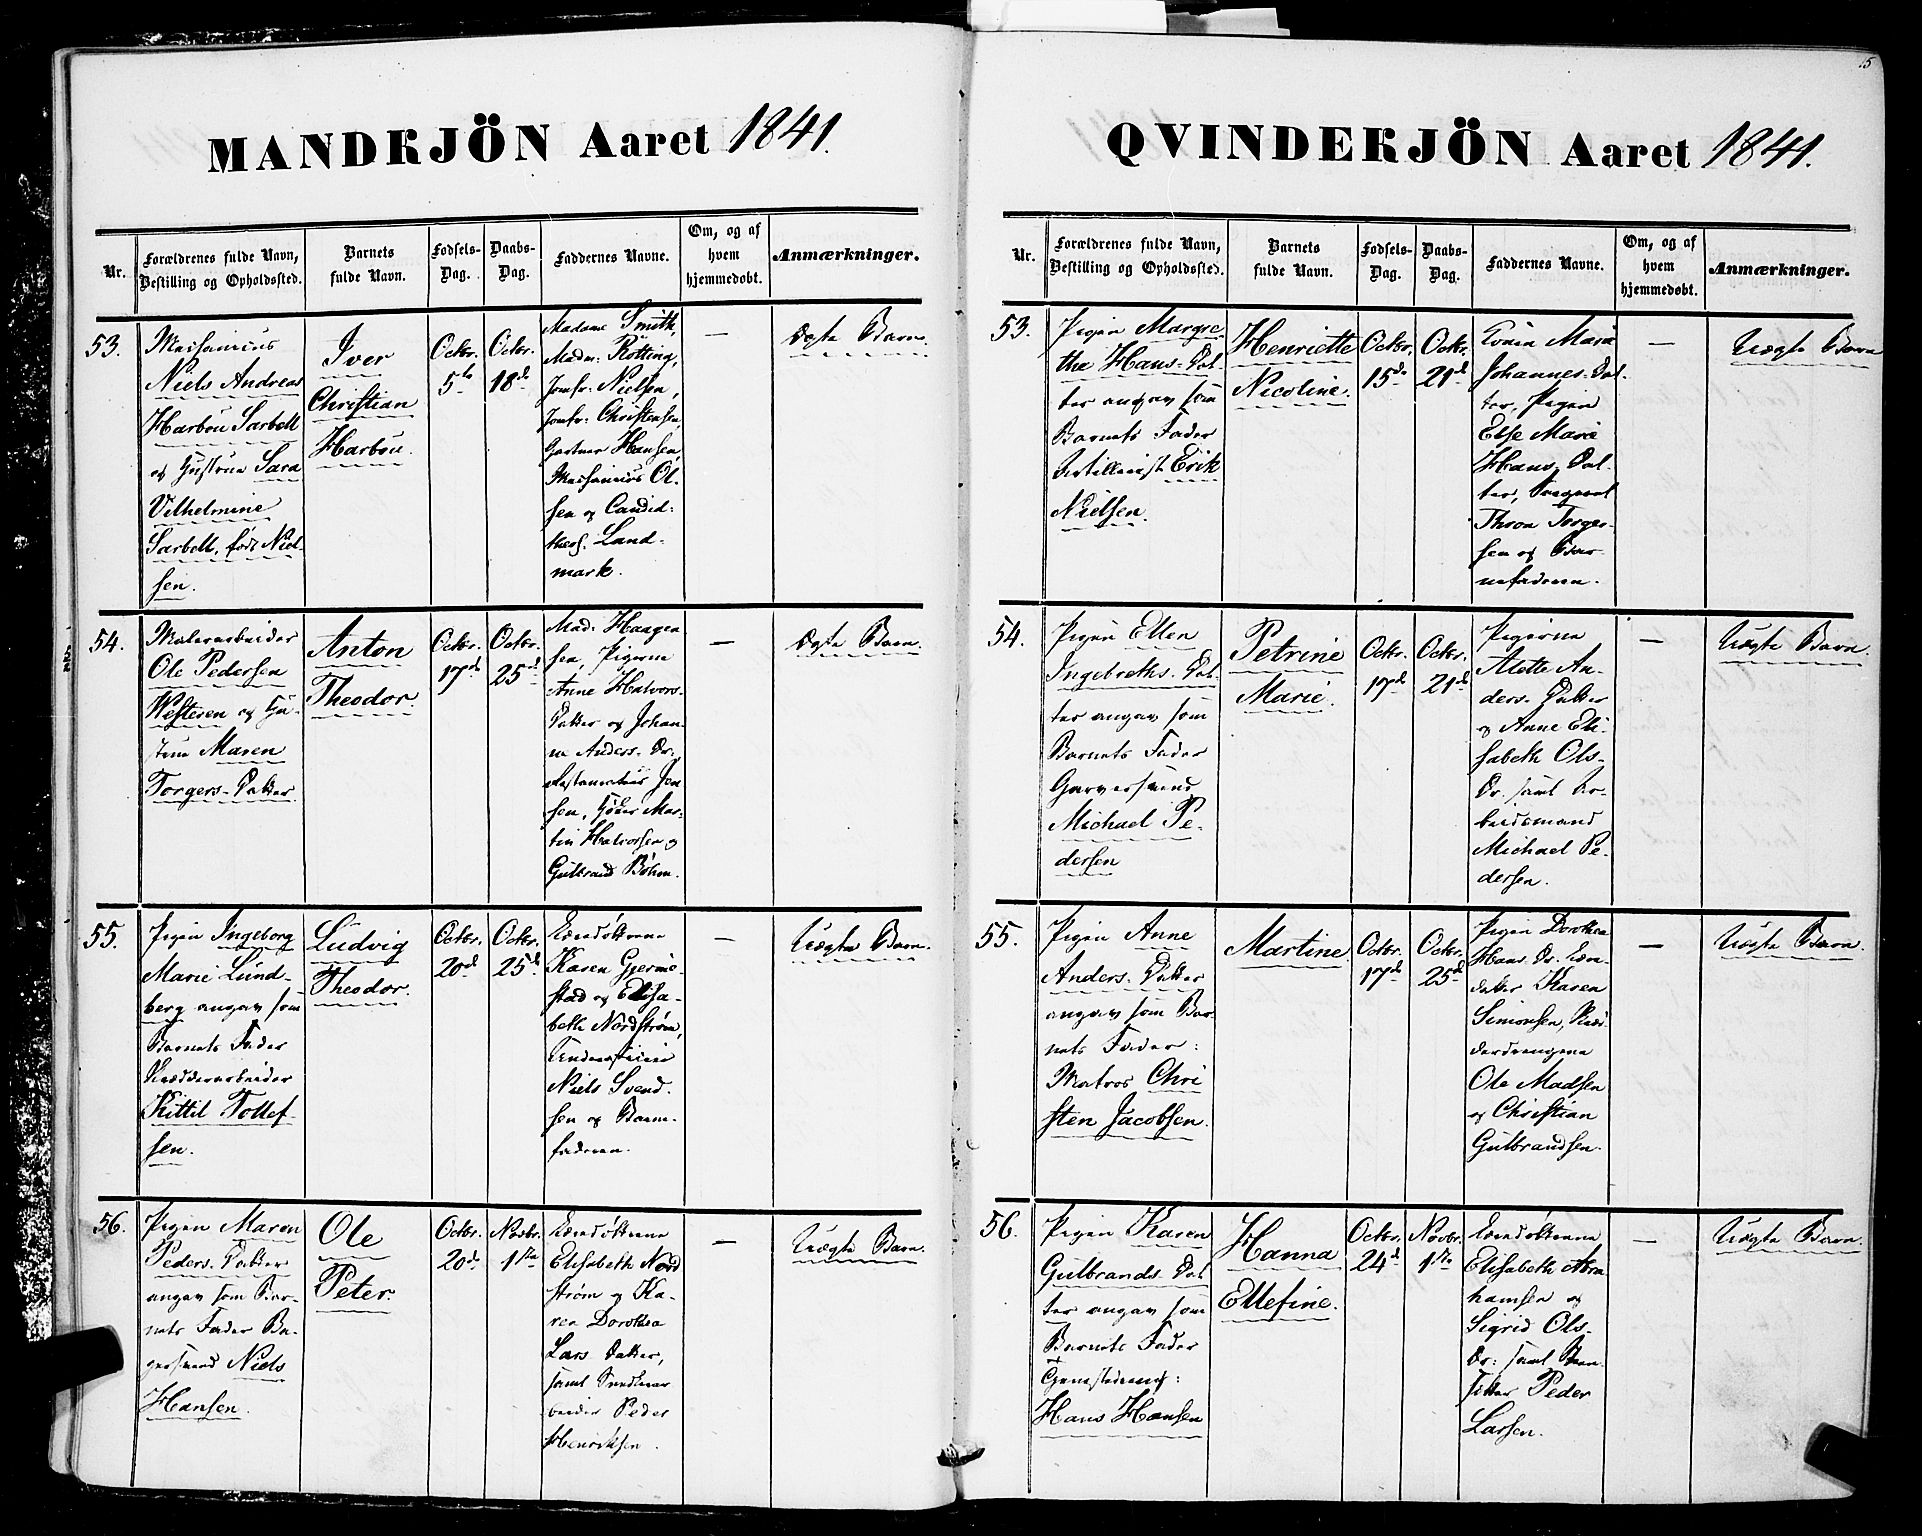 5
MANDKJÖN Aaret 1841.
Nr.
Forældrenes fulde Navn,
Bestilling og Opholdssted.
Barnets
fulde Navn.
Fødsels-
Dag.
Daabs-
Dag.
Faddernes Navne.
Om, og af
hvem
hjemmedøbt.
Anmærkninger.
53.
Niels Andreas
Harbou Sarbell
og Hustrue Sara
Vilhelmine
Sarbell, født Niel-
sen.
Iver
Christian
Harbou.
Octbr.
5te
Octbr.
18de
Madame Smith,
Madm: Rötting,
Jomfr: Nielsen,
Jomfr: Christensen,
Gartner Hansen,
Ol-
sen og Candid:
theol. Land-
mark.
—
Ægte Barn.
54.
Ole Pedersen
Westeren og Hu-
strue Maren
Torgers-Datter.
Anton
Theodor.
Octbr.
17de
Octbr.
25de
Mad: Haagen-
sen, Pigerne
Anne Halvors-
Datter og Johan-
ne Anders-Dr:
Jen-
sen, Mar-
tin Halvorsen og
Gulbrand Böhm.
—
Ægte Barn.
55.
Pigen Ingeborg
Marie Lund-
berg angav som
Barnets Fader
Kittil Tollef-
sen.
Ludvig
Theodor.
Octbr.
20de
Octbr.
25de
Karen Gjerme-
stad og Elisa-
beth Nordström,
Niels Svend-
sen og Barne-
faderen.
—
Uægte Barn.
56.
Pigen Maren
Peders-Datter
angav som Bar-
nets Fader Ba-
gersvend Niels
Hansen.
Ole
Peter.
Octbr.
20de
Novbr.
1ste
Elisabeth Nord-
ström og Ka-
ren Dorothea
Lars Datter,
samt
Peder
Henriksen.
—
Uægte Barn.
QVINDEKJÖN Aaret 1841.
Nr.
Forældrenes fulde Navn,
Bestilling og Opholdssted.
Barnets
fulde Navn.
Fødsels-
Dag.
Daabs-
Dag.
Faddernes Navne.
Om, og af
hvem
hjemmedøbt.
Anmærkninger.
53.
Pigen Margre-
the Hans-Dat-
ter angav som
Barnets Fader
Artillerist Erik
Nielsen.
Henriette
Nicoline.
Octbr.
15de
Octbr.
21de
Konen Marie
Johannes-Dat-
ter, Pigen
Else Marie
Hans-Dat-
ter,
Thron Torger-
sen og Bar-
nefaderen.
—
Uægte Barn
54.
Pigen Ellen
Ingebreths-Dat-
ter angav som
Barnets Fader
Garversvend
Michael Pe-
dersen
Petrine
Marie.
Octbr.
17de
Octbr.
21de
Pigerne
Alette An-
ders-Datter
og Anne Eli-
sabeth Ols-
Dr. samt Ar-
beidsmand
Michael Pe-
dersen.
—
Uægte Barn.
55.
Pigen Anne
Anders-Datter
angav som Bar-
nets Fader:
Matros Chri-
sten Jacobsen.
Martine
Octbr.
17de
Octbr.
25de
Pigen Dorthea
Hans-Dr.
Karen
Simonsen,
Ole Madsen
og Christian
Gulbrandsen.
—
Uægte Barn.
56.
Pigen Karen
Gulbrands-Dat-
ter angav som
Barnets Fader
Hans Hansen
Hanna
Ellefine.
Octbr.
24de
Novbr.
1ste
Elisabeth Abra-
hamsen og
Sigrid Ols-
Dr: samt
Peder
Larsen.
—
Uægte Barn.